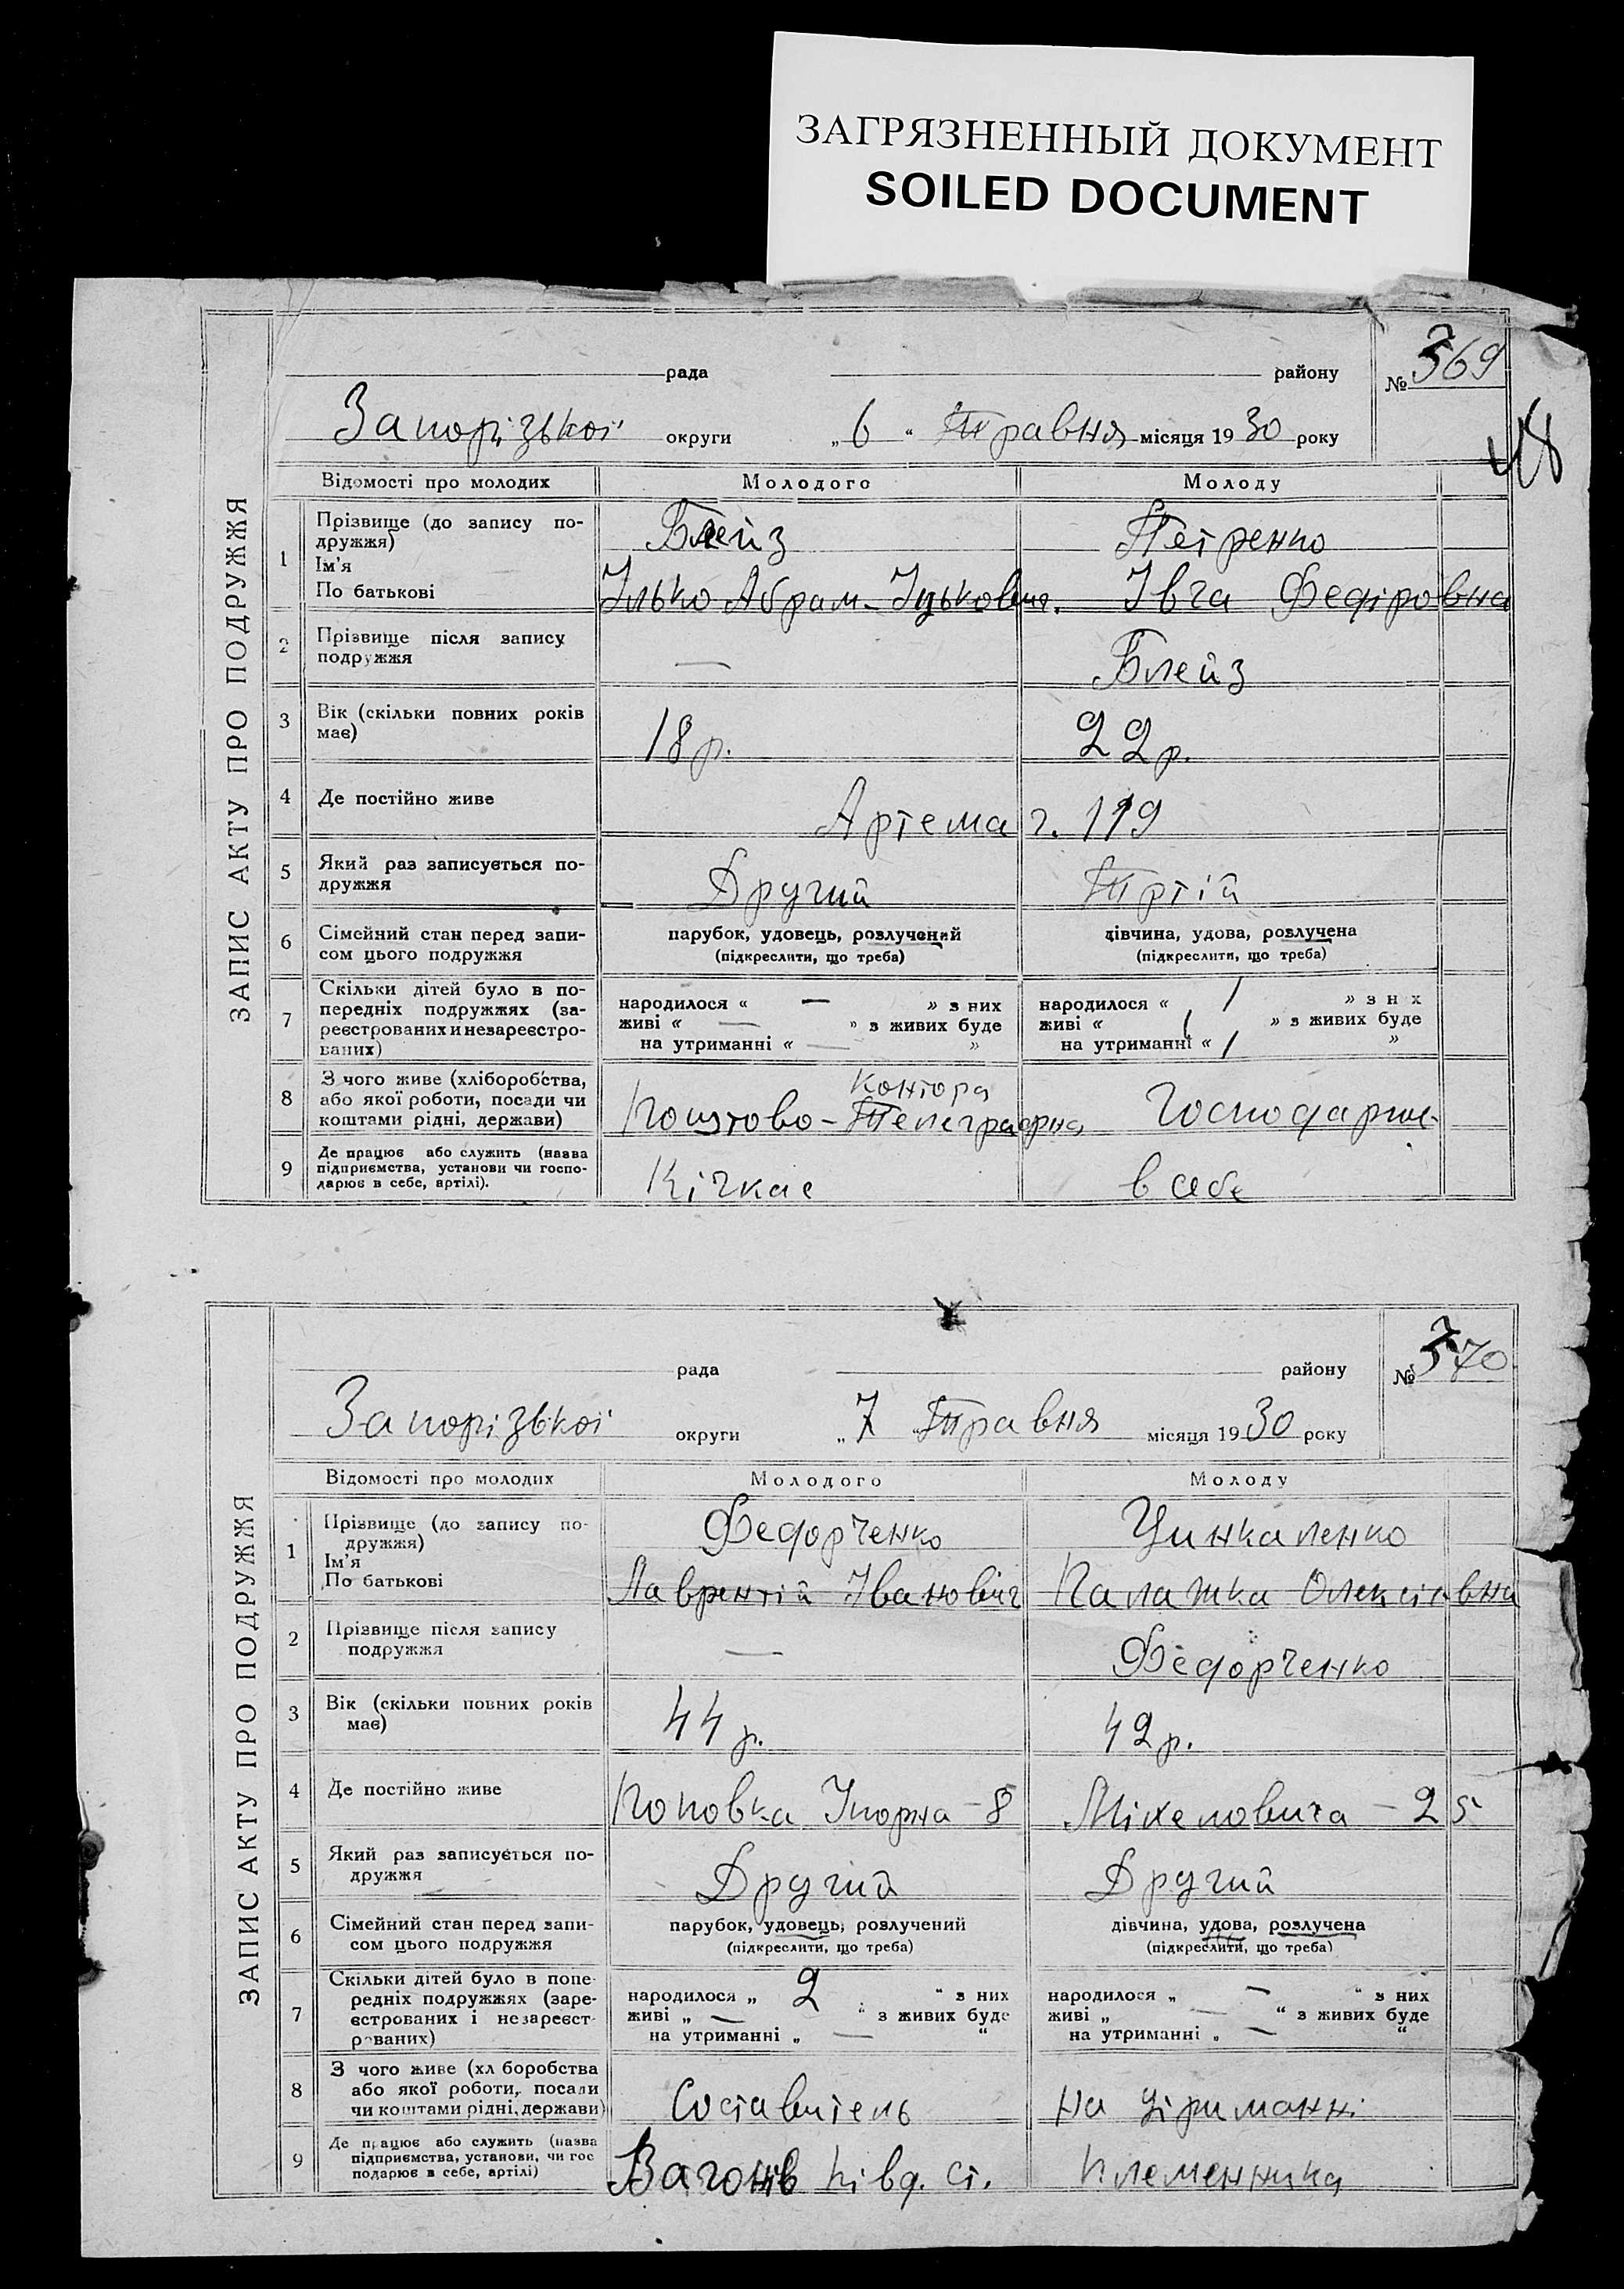 ЗАГРЯЗНЕННЫЙ ДОКУМЕНТ
SOILED DOCUMENT
ЗАПИС АКТУ ПРО ПОДРУЖЖЯ
рада району № 369
Запорізької округи „ 6 “ Травня місяця 1930 року
48
Відомості про молодих Молодого Молоду
1 Прізвище (до запису по-
дружжя)
Ім'я
По батькові
Блейз Петренко
Ілько Абрам-Іцькович. Івга Федіровна
2 Прізвище після запису
подружжя
— Блейз
3 Вік (скільки повних років
має)
18 р. 22 р.
4 Де постійно живе Артема ч. 119
5 Який раз записується по-
дружжя
Другий Третій
6 Сімейний стан перед запи-
сом цього подружжя
парубок, удовець, розлучений дівчина, удова, розлучена
(підкреслити, що треба) (підкреслити, що треба)
7 Скільки дітей було в по-
передніх подружжях (за-
реєстрованих и незареєстро-
ваних)
народилося « — » з них народилося « / » з них
живі « — » з живих буде живі « / » з живих буде
на утриманні « — » на утриманні « / »
8 З чого живе (хліборобства,
або якої роботи, посади чи
коштами рідні, держави)
контора
Поштово-Телеграфна Господарює
9 Де працює або служить (назва
підприємства, установи чи госпо-
дарює в себе, артілі).
Кічкас в себе
ЗАПИС АКТУ ПРО ПОДРУЖЖЯ
рада району № 370
Запорізької округи „ 7 “ Травня місяця 1930 року
Відомості про молодих Молодого Молоду
1 Прізвище (до запису по-
дружжя)
Ім'я
По батькові
Федорченко Цинкаленко
Лаврентій Іванович Палажка Олексіївна
2 Прізвище після запису
подружжя
— Федорченко
3 Вік (скільки повних років
має)
44 р. 42 р.
4 Де постійно живе Поповка - 8 Міхеловича - 25
5 Який раз записується по-
дружжя
Другий Другий
6 Сімейний стан перед запи-
сом цього подружжя
парубок, удовець, розлучений дівчина, удова, розлучена
(підкреслити, що треба) (підкреслити, що треба)
7 Скільки дітей було в попе-
редніх подружжях (заре-
єстрованих і незареєст-
рованих)
народилося „ 2 “ з них народилося „ — “ з них
живі „ — “ з живих буде живі „ — “ з живих буде
на утриманні „ — “ на утриманні „ — “
8 З чого живе (хл боробства
або якої роботи, посади
чи коштами рідні, держави)
Составитель на утриманні
9 Де працює або служить (назва
підприємства, установи, чи гос
подарює в себе, артілі)
Вагонів Півд. ст. племенника